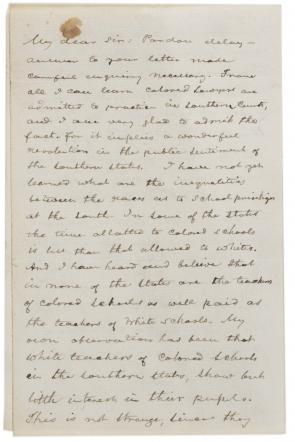 My dear Sir: Pardon delay –
answer to your letter made
careful enquiry necessary. From
all I can learn colored Lawyers are
admitted to practice in Southern Courts,
and I am very glad to admit the
fact – for it implies a wonderful
revolution in the public sentiment of
the Southern States. I have not yet
learned what are the inequalities
between the races as to School privileges
at the South – In some of the States
the time allotted to colored schools
is less than that allowed to whites.
And I have heard and believe that
in none of the States are the teachers
of colored Schools as well paid as
the teachers of White Schools. My
own observation has been that
white teachers of Colored Schools
in the southern states, show but
little interest in their pupils.
This is not strange, since they